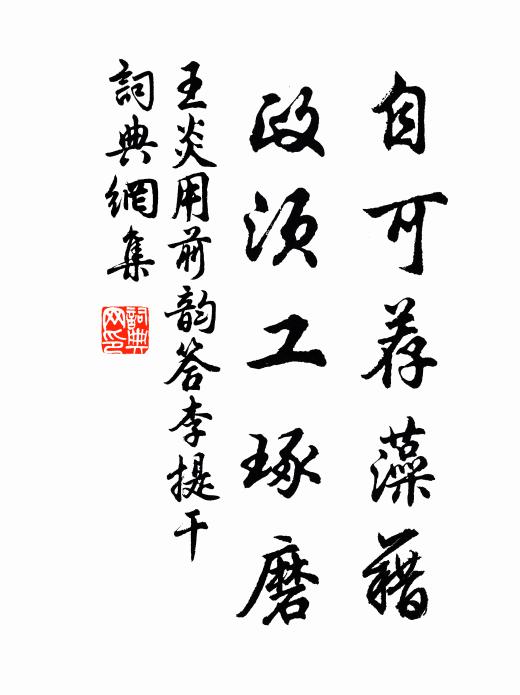 自可荐藻藉
政须工琢磨
王炎用前韵答李提干
詞典網集
詞典网印